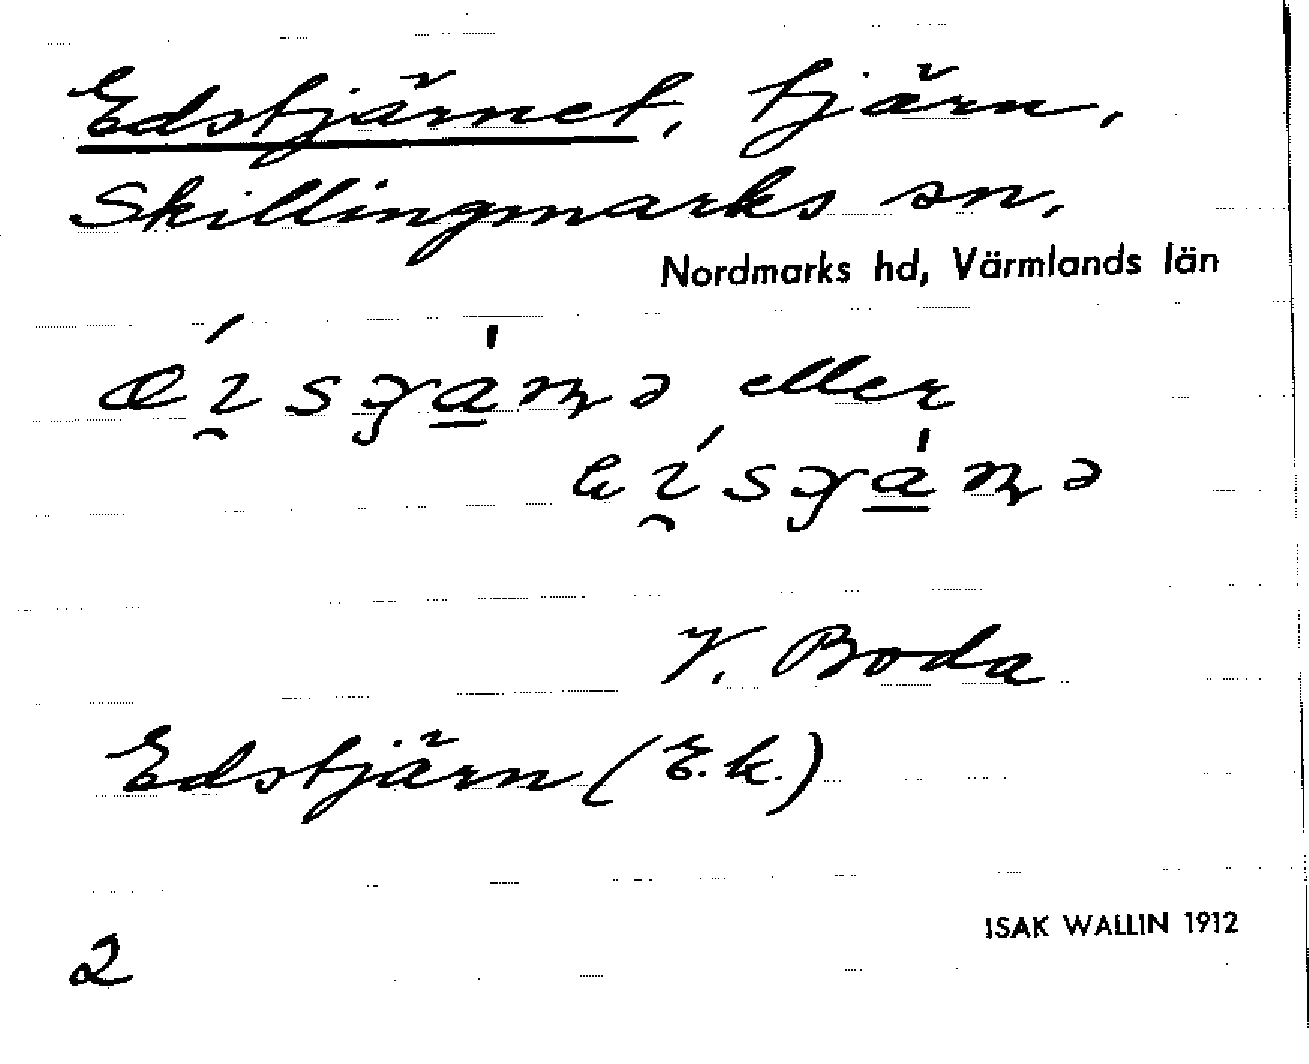 Edstjärnet, tjärn,
Skillingmarks sn,
Nordmarks hd, Värmlands län
eller
V. Boda
Edstjärn (E.k.)
2
ISAK WALLIN 1912